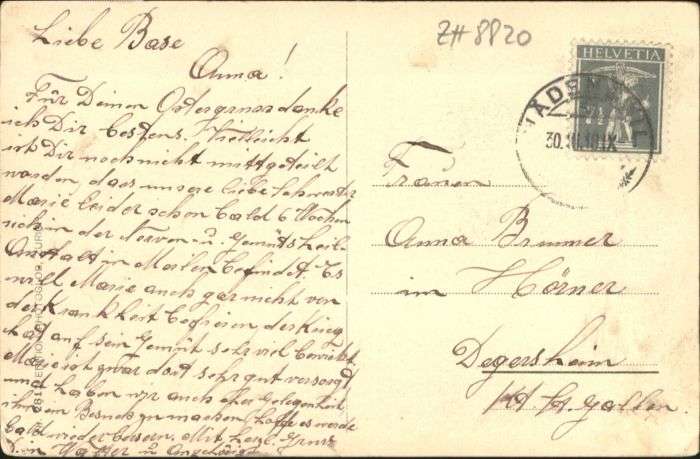 ZH 8820
Liebe Base
Anna!
Für Deinen Ostergruss danke
ich Dir bestens. Vielleicht
ist Dir noch nicht mittgeteilt
worden, dass unsere liebe Schwester
Marie leider schon bald 6 Wochen
sich in der Nerven u. Gemütsheil
Anstalt in Meilen befindet. Es
will Marie auch gar nicht von
der Krankheit bessern der Krieg
hat auf sein Gemüt sehr viel bewirkt
Marie ist zwar dort sehr gut versorgt
und haben wir auch eher Gelegenheit
ihr den Besuch zu machen, hoffe es werde
bald wieder bessern. Mit herzl. Gruss
Dein Vetter u. Angehörige
HELVETIA
7½
WÄDENSWIL
30.
Frauen
Anna Brunner
im Hörner
Degersheim
Kt. St. Gallen.